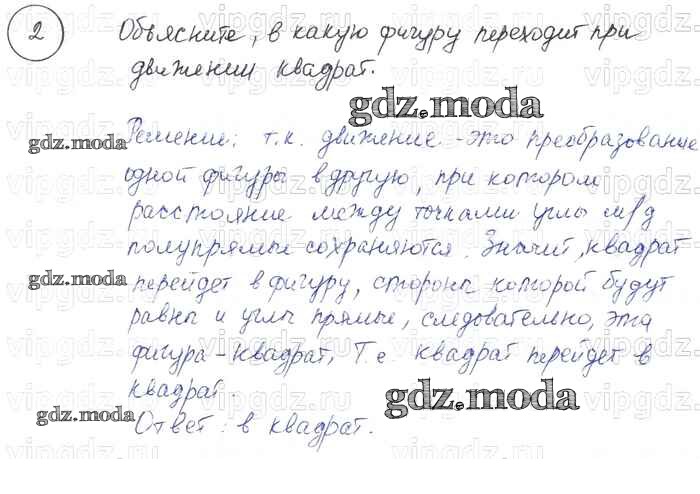 2 Объясните, в какую фигуру переходит при
движении квадрат.
gdz.moda
Решение: т.к. движение - это преобразование
gdz.moda
одной фигуры в другую, при котором
расстояние между точками углы м/д
полупрямые сохраняются. Значит, квадрат
gdz.moda
перейдет в фигуру, стороны которой будут
равны и углы прямые, следовательно, эта
фигура - квадрат, Т.е. квадрат перейдет в
квадрат.
gdz.moda
gdz.moda
Ответ: в квадрат.